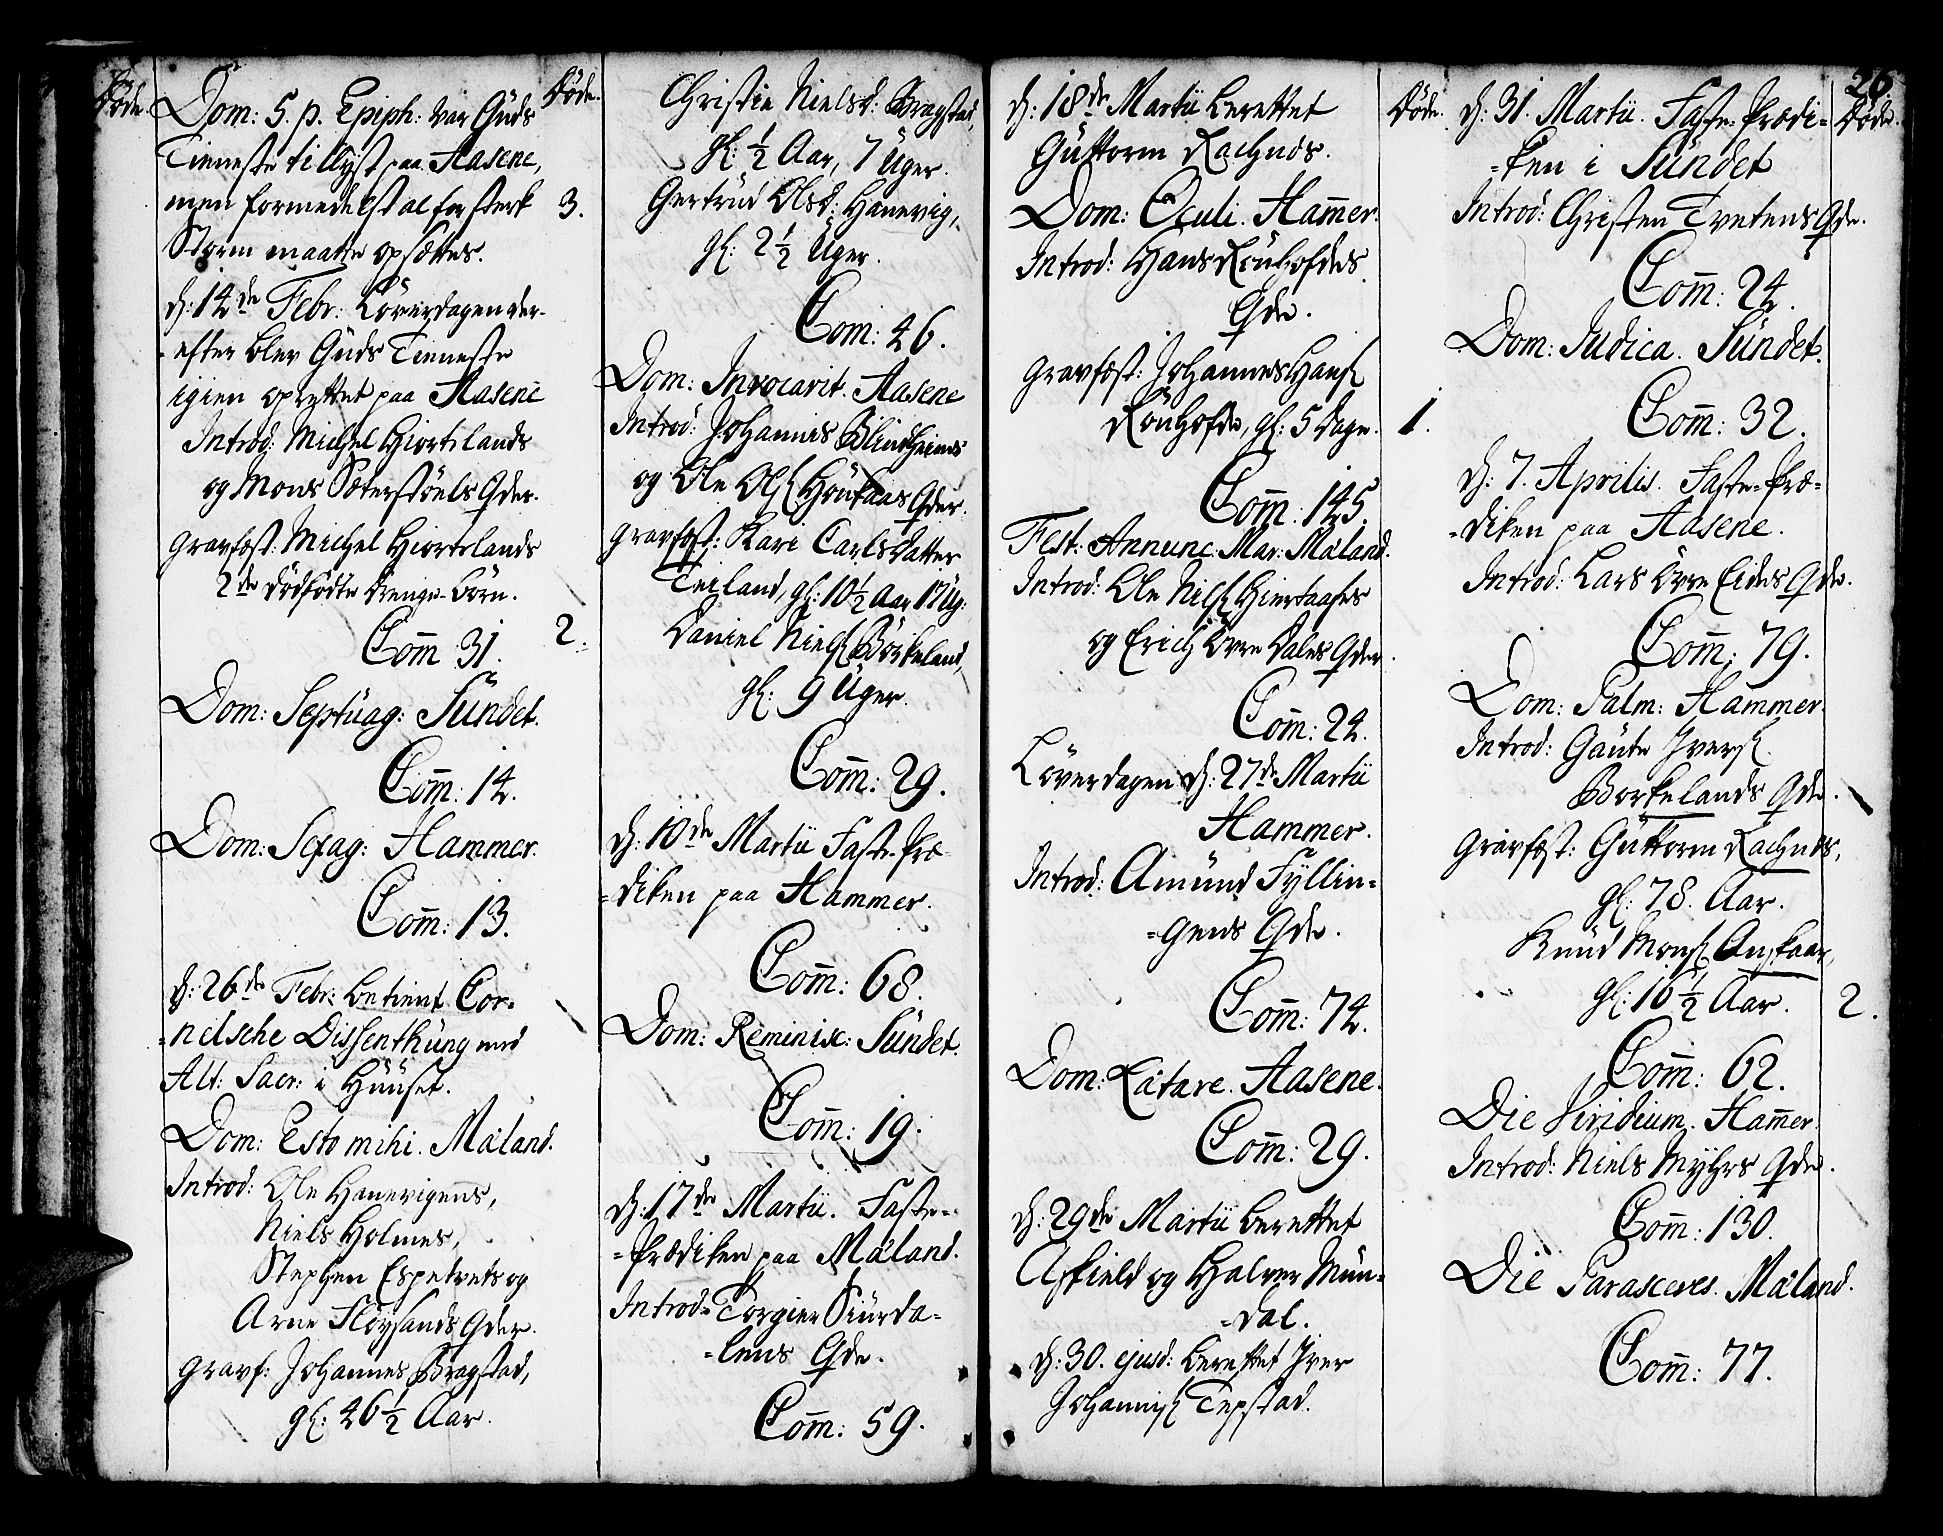 Døde.
Dom: 5. p. Epiph: var Guds
Tieneste tillyst paa Aasene,
men formedelst alfor sterk
Storm maatte opsættes.
d: 14de Febr: Løverdagen der-
=efter blev Guds Tieneste
igien oprettet paa Aasene
Introd: Michel Hiortelands
og Mons Sæterstöels Qder.
gravfæst: Michel Hiortelands
2de dödfödte Drenge-Börn.
Com̄ 31.
Dom: Septuag: Sundet.
Com̄: 14.
Dom: Sexag: Hammer.
Com̄: 13.
d: 26de Febr: betient Cor=
=nelsche Dissenthung med
Alt: Sacr: i Huuset.
Dom: Esto mihi. Måland.
Introd: Ole Hanevigens,
Niels Holmes,
Stephen Espetvets og
Arne Flöysands Qder.
gravf: Johannes Bragstad,
gl: 46 1/2 Aar.
Døde.
3.
2.
Christie Nielsd: Bragstad,
gl: 1/2 Aar, 7 Uger.
Gertrud Olsd: Hanevig,
gl: 2 1/2 Uger.
Com: 46.
Dom: Invocavit. Aasene
Introd: Johannes Blindheims
og Ole Ols. Höutaas Qder.
gravfæst: Kari Carls Datter
Teiland, gl: 10 1/2 Aar 17 Ug:
Daniel Niels. Börkeland,
gl: 9 Uger.
Com̄: 29.
d: 10de Martii Faste-Præ
=diken paa Hammer.
Com̄: 68.
Dom: Reminisc: Sundet.
Com̄: 19.
d: 17de Martii. Faste-
=Prædiken paa Måland.
Introd: Torgier Siurda=
=lens Qde.
Com̄: 59.
d: 18de Martii berettet
Guttorm Rachnds.
Dom: Oculi. Ham̄er.
Introd: Hans Rönhofdes
Qde.
gravfæst: Johannes Hans.
Rönhofde, gl: 5 Dage.
Com̄: 145.
Fest: Annunc: Mar: Måland.
Introd: Ole Nils. Hiertaases
og Erich Övre Dales Qder.
Com̄: 24.
Löverdagen d: 27de Martii
Hammer.
Introd: Amund Fyllin=
=gens Qde.
Com̄: 74.
Dom: Lætare. Aasene.
Com̄: 29.
d: 29de Martii berettet
Askield og Halver Mun=
=dal.
d: 30. ejusd: berettet Iver
Johannis. Tepstad.
Døde.
1.
d: 31. Martii. Faste-Prædi=
=ken i Sundet
Introd: Christen Tvetens Qde.
Com̄: 24.
Dom: Judica. Sundet.
Com̄: 32.
d: 7. Aprilis. Faste-Præ=
=diken paa Aasene.
Introd: Lars Övre Eides Qde.
Com̄: 79.
Dom: Palm: Hammer.
Introd: Gaute Ivers.
Borkelands Qde.
gravfæst: Guttorm Rachnds,
gl: 78. Aar.
Knud Mons. Anskaar,
gl: 16 1/2 Aar.
Com̄: 62.
Die Viridium. Ham̄er.
Introd: Niels Myhrs Qde.
Com̄: 130.
Die Parasceves. Måland.
Com̄: 77.
26.
Døde.
2.